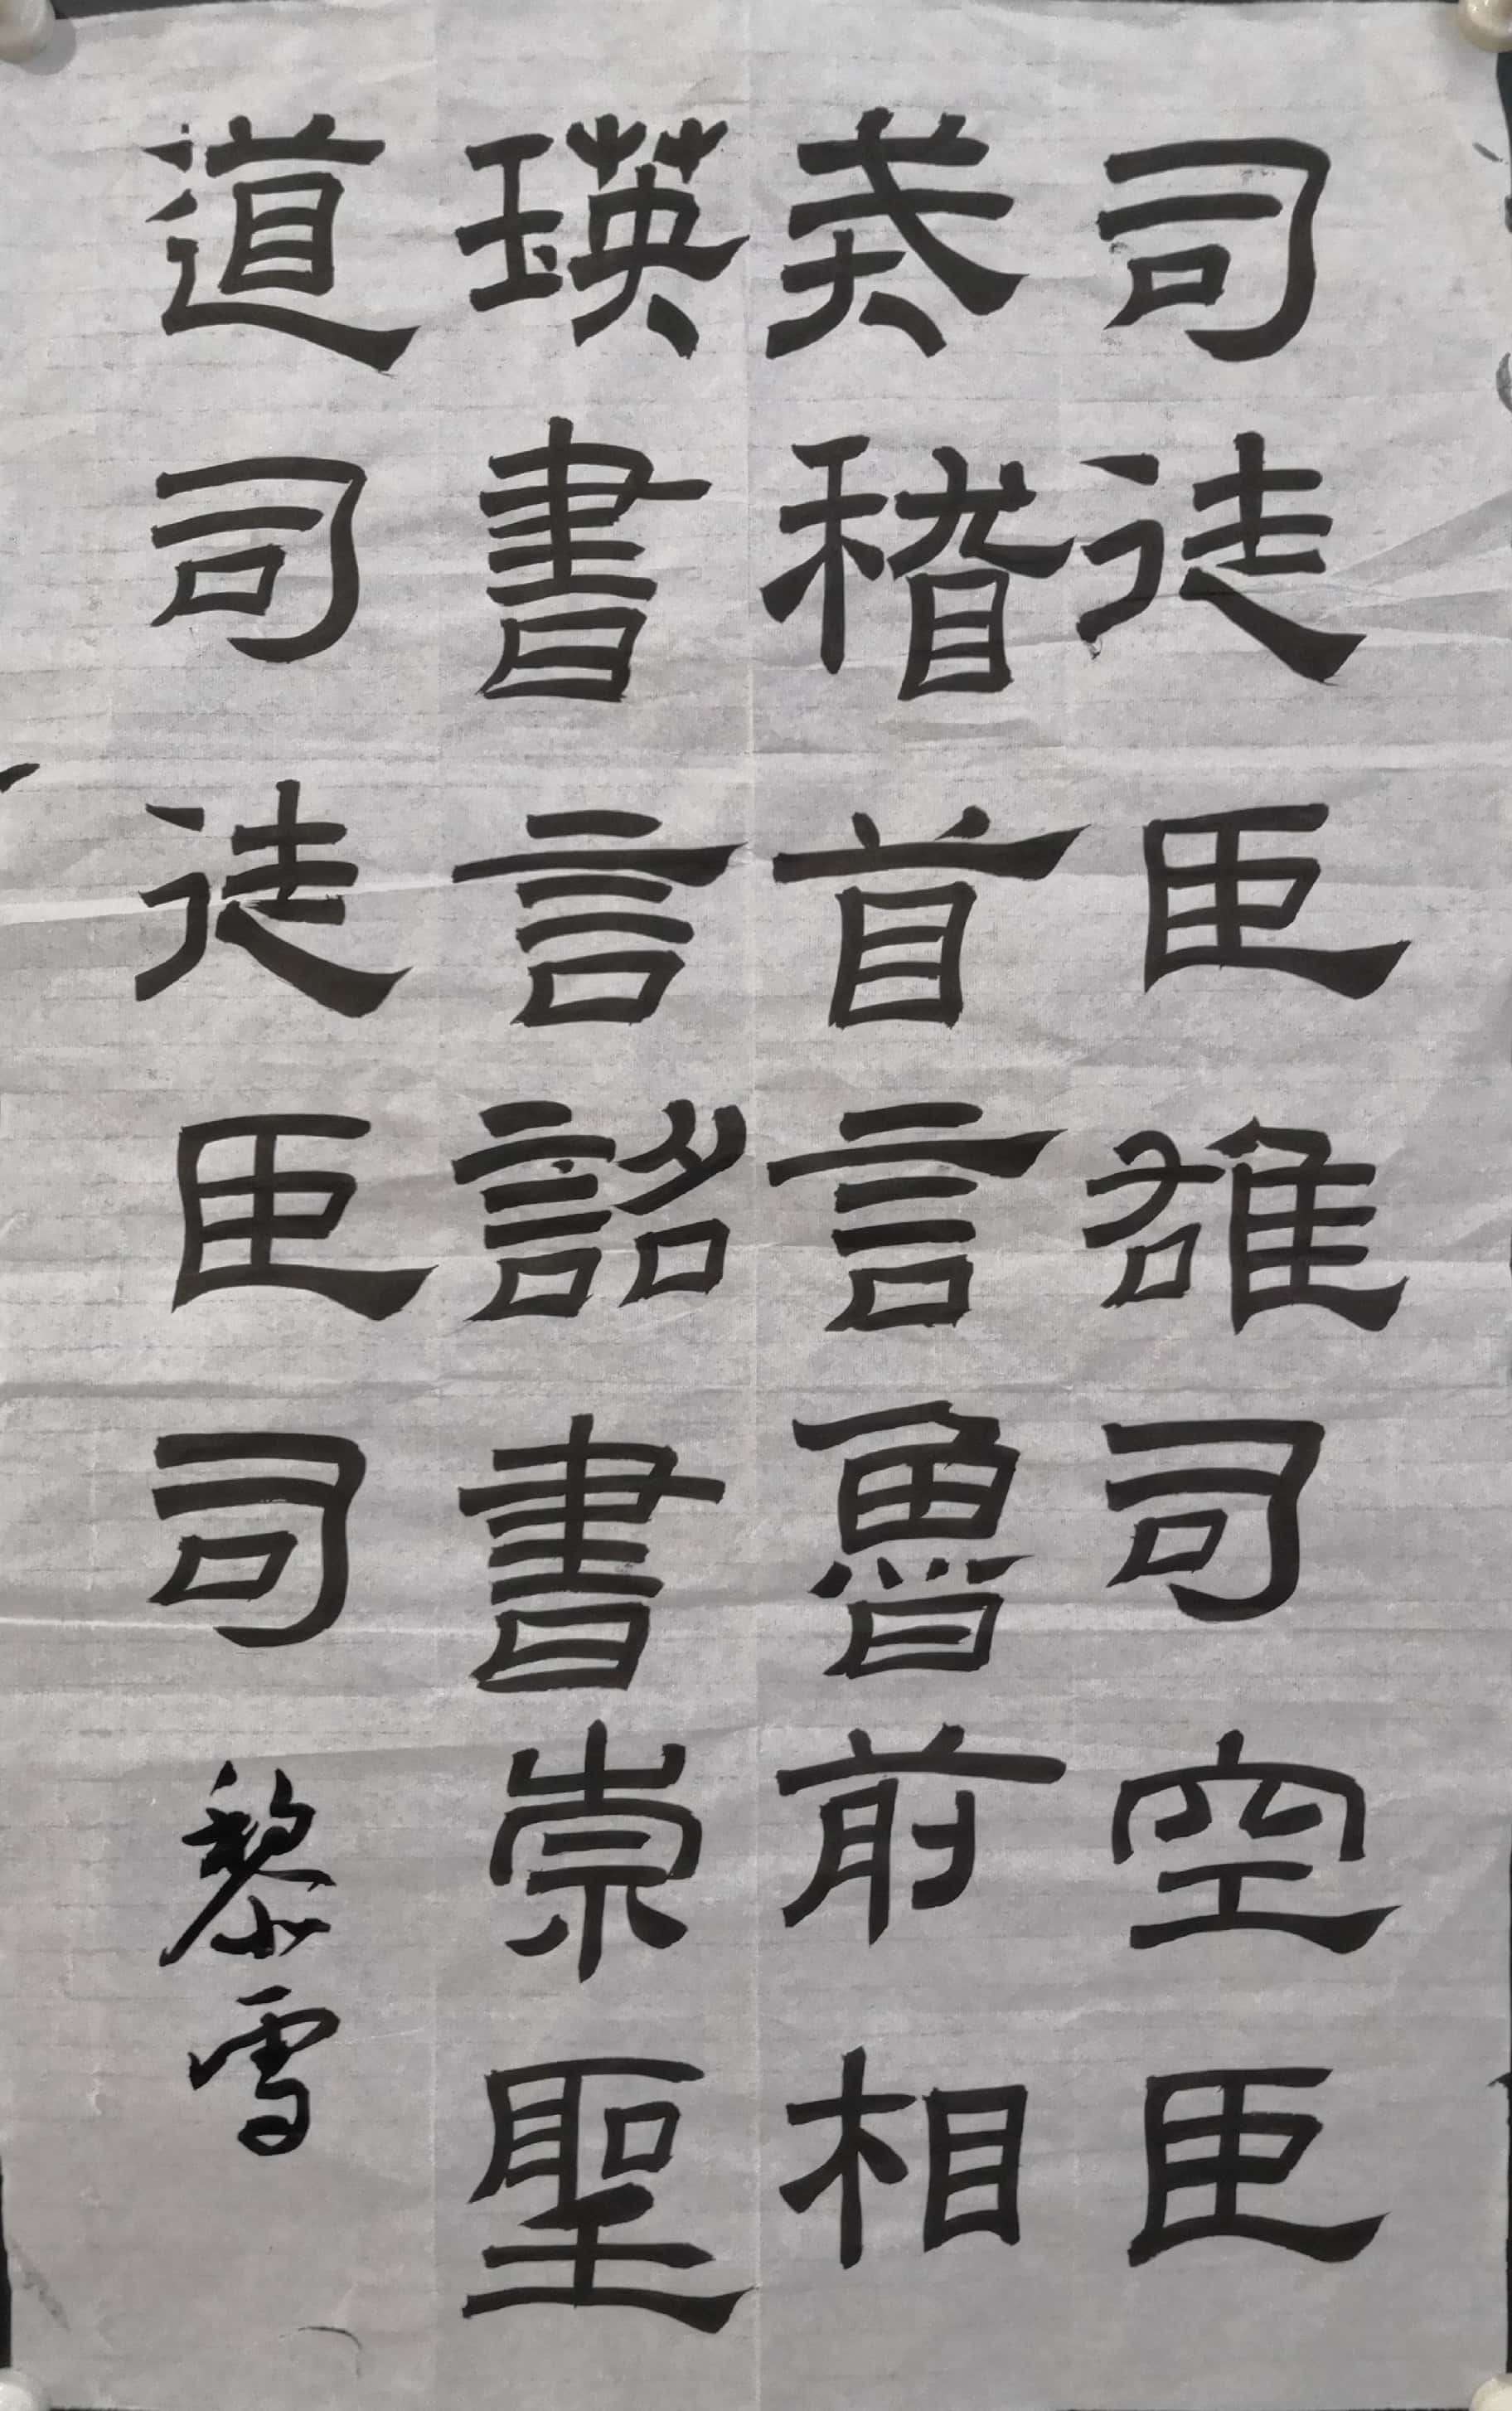 司徒臣雄司空臣
戒稽首言魯前相
瑛書言詔書崇聖
道司徒臣司
黎雪